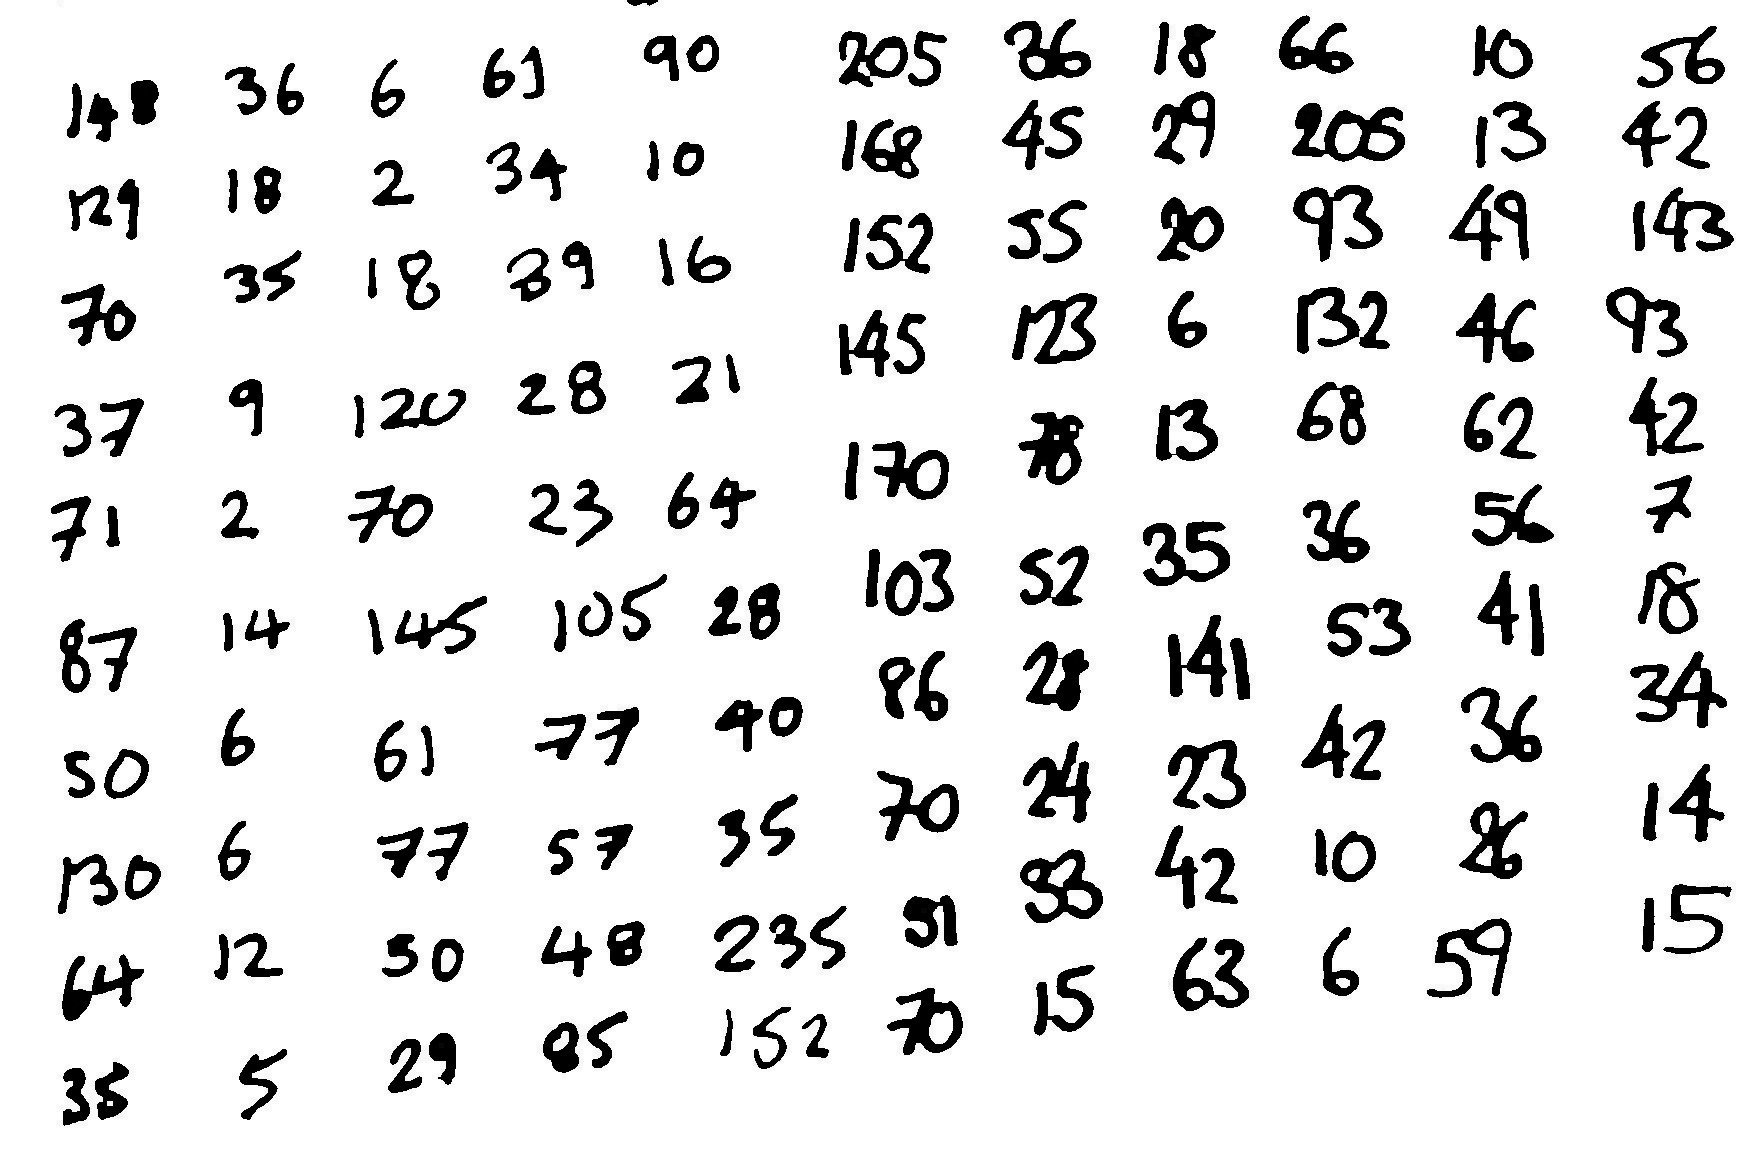 148 36 6 61 90 205 36 18 66 10 56
129 18 2 34 10 168 45 29 205 13 42
70 35 18 39 16 152 55 20 93 49 143
37 9 120 28 21 145 123 6 132 46 93
71 2 70 23 64 170 78 13 68 62 42
87 14 145 105 28 103 52 35 36 56 7
50 6 61 77 40 86 28 141 53 41 18
130 6 77 57 35 70 24 23 42 36 34
64 12 50 48 235 51 33 42 10 26 14
35 5 29 85 152 70 15 63 6 59 15